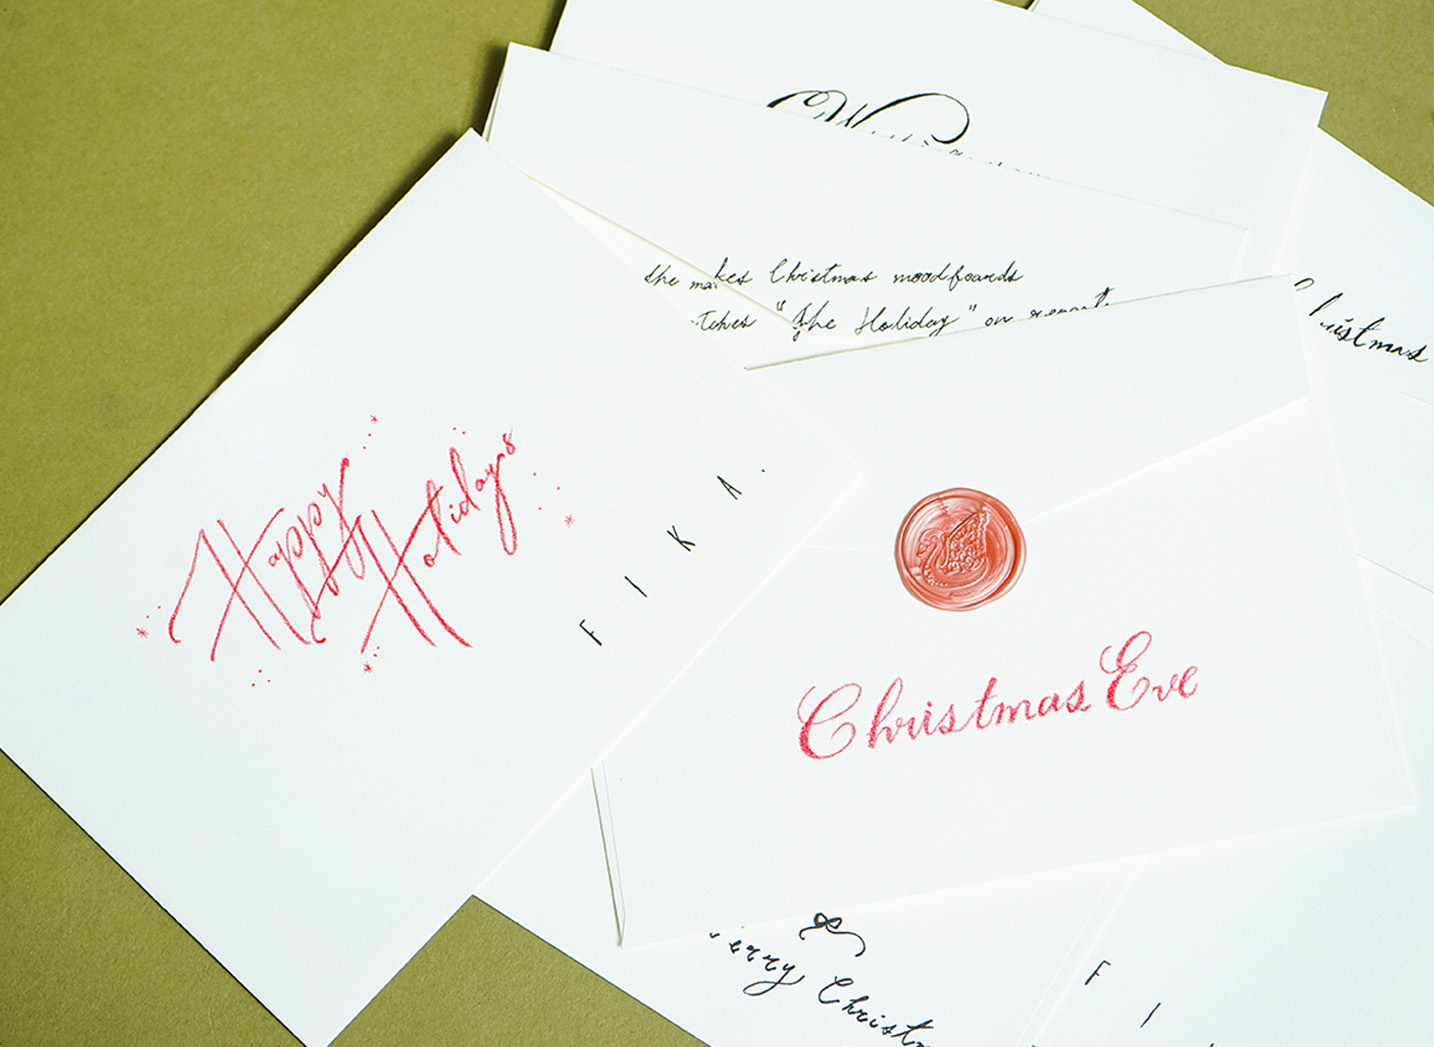 she makes Christmas moodboards
"The Holiday" on
Christmas
Happy
Holidays
F I K A .
Christmas Eve
Christm
F I